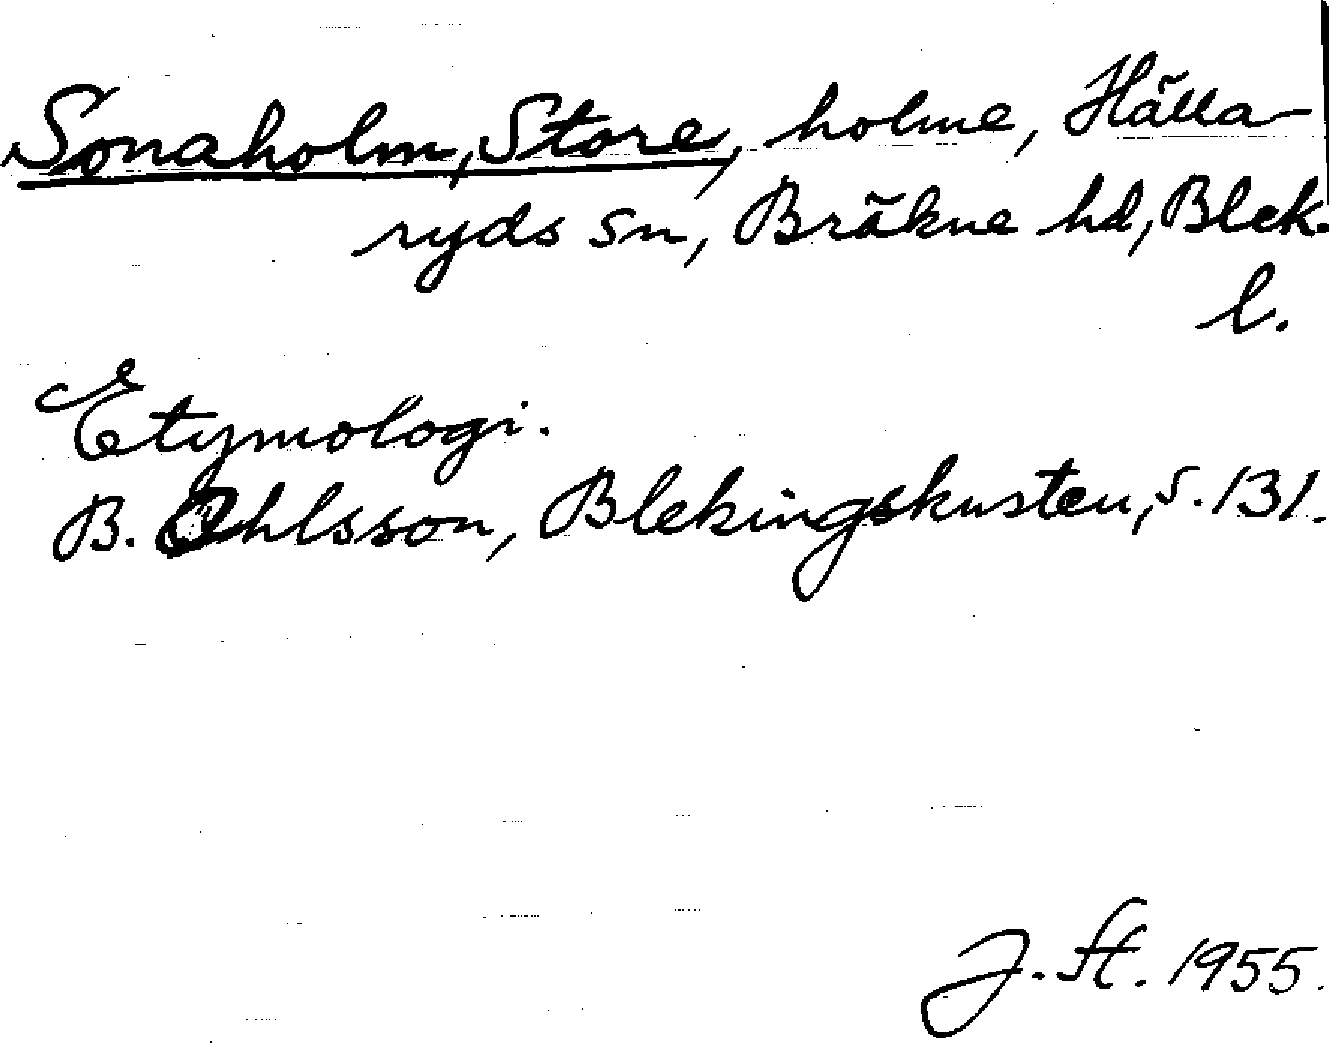 Sonaholm, Store, holme, Hälla-
ryds sn, Bräkne hd, Blek.
l.
Etymologi.
B. Ohlsson, Blekingskusten, s. 131.
J. St. 1955.